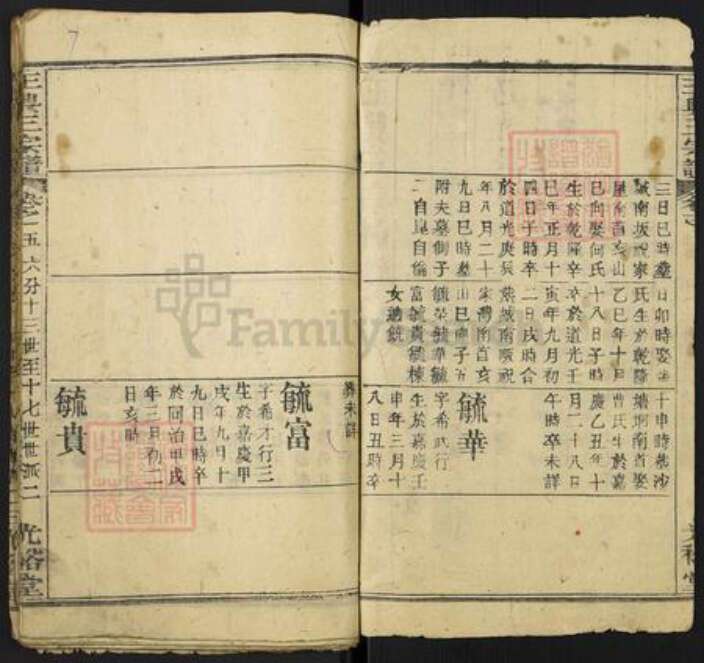 三日巳時葬
城南坂祝家
屋南首亥山
巳向娶何氏
生於乾隆辛
巳年正月十
四日子時卒
於道光庚辰
年八月二十
九日巳時葬
附夫墓側子
二自崑自倫
日卯時娶
氏生於乾隆
乙巳年十月
十八日子時
卒於道光壬
寅年九月初
二日戌時合
葬城南嚴祝
家灣南首亥
山巳向子五
毓榮毓華毓
富毓貴毓棟
女適饒
十申時葬沙
塘坰南首娶
曹氏生於嘉
慶乙丑年十
月二十八日
午時卒未詳
毓華
字希武行
生於嘉慶壬
申年三月十
八日丑時卒
葬未詳
毓富
字希才行三
生於嘉慶甲
戌年九月十
九日巳時卒
於同治甲戌
年三月初二
日亥時
毓貴
五六分十三世至十七世世派二
光裕堂
7
Family